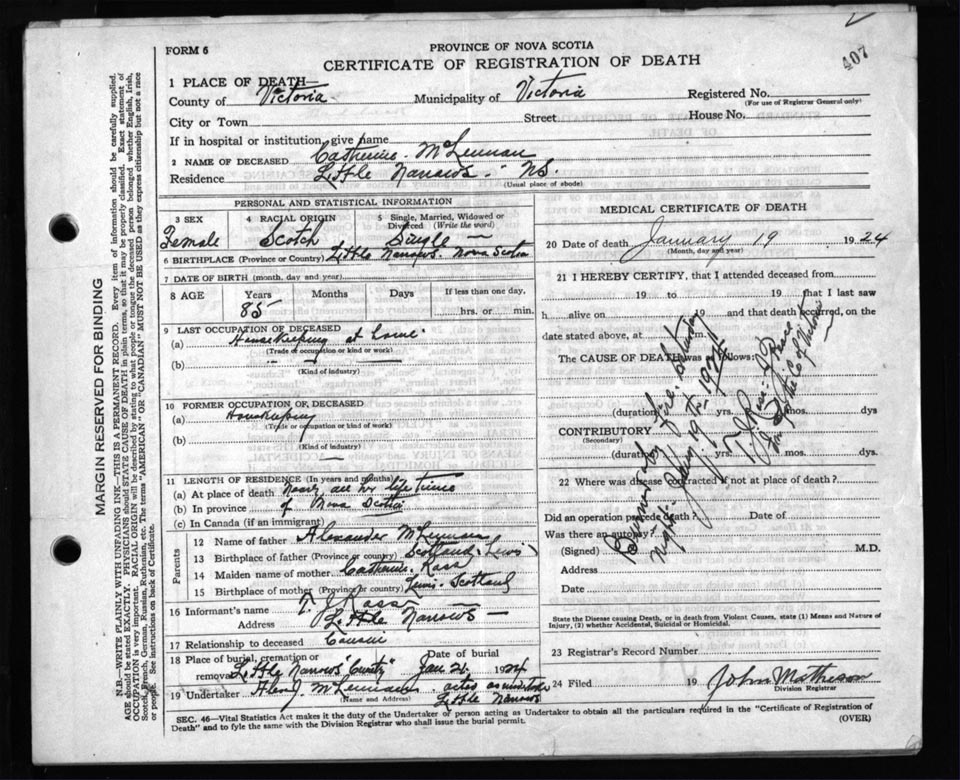 407
FORM 6
PROVINCE OF NOVA SCOTIA
CERTIFICATE OF REGISTRATION OF DEATH
1 PLACE OF DEATH—
County of Victoria Municipality of Victoria Registered No.
(For use of Registrar General only)
City or Town Street House No.
If in hospital or institution, give name
2 NAME OF DECEASED Catherine McLennan
Residence Little Narrows N.S.
(Usual place of abode)
PERSONAL AND STATISTICAL INFORMATION
3 SEX 4 RACIAL ORIGIN 5 Single, Married, Widowed or Divorced (Write the word)
Female Scotch Single
6 BIRTHPLACE (Province or Country) Little Narrows Nova Scotia
7 DATE OF BIRTH (month, day and year)
8 AGE Years Months Days If less than one day,
85 hrs. or min.
9 LAST OCCUPATION OF DECEASED
(a) Housekeeping at home
(Trade or occupation or kind or work)
(b)
(Kind of industry)
10 FORMER OCCUPATION OF DECEASED
(a) Housekeeping
(Trade or occupation or kind of work)
(b)
(Kind of industry)
11 LENGTH OF RESIDENCE (In years and months)
(a) At place of death Nearly all her life time
(b) In province of Nova Scotia
(c) In Canada (if an immigrant)
Parents
12 Name of father Alexander McLennan
13 Birthplace of father (Province or country) Scotland Lewis
14 Maiden name of mother Catherine Ross
15 Birthplace of mother (Province or country) Lewis Scotland
16 Informant's name Ross
Address Little Narrows
17 Relationship to deceased Cousin
18 Place of burial, cremation or removal Date of burial
Little Narrows Jan 21 1924
19 Undertaker McLennan acted as undertaker
(Name and Address) Little Narrows
MEDICAL CERTIFICATE OF DEATH
20 Date of death January 19 1924
(Month, day and year)
21 I HEREBY CERTIFY, that I attended deceased from
19 to 19 that I last saw
h alive on 19 and that death occurred, on the
date stated above, at m.
The CAUSE OF DEATH was as follows:
(duration) yrs. mos. dys
CONTRIBUTORY
(Secondary)
(duration) yrs. mos. dys.
22 Where was disease contracted if not at place of death?
Did an operation precede death? Date of
Was there an autopsy?
(Signed) M.D.
Address
Date
Burned by fire between
night Jany 19th 1924
State the Disease causing Death, or in death from Violent Causes, state (1) Means and Nature of Injury, (2) whether Accidental, Suicidal or Homicidal.
23 Registrar's Record Number
24 Filed 19 John Matheson
Division Registrar
SEC. 46—Vital Statistics Act makes it the duty of the Undertaker or person acting as Undertaker to obtain all the particulars required in the "Certificate of Registration of
Death" and to fyle the same with the Division Registrar who shall issue the burial permit. (OVER)
MARGIN RESERVED FOR BINDING
N.B.—WRITE PLAINLY WITH UNFADING INK—THIS IS A PERMANENT RECORD. Every item of information should be carefully supplied.
AGE should be stated EXACTLY. PHYSICIANS should STATE CAUSE OF DEATH in plain terms, so that it may be properly classified. Exact statement of
OCCUPATION is very important. RACIAL ORIGIN will be described by stating to what people or tongue the deceased person belonged whether English, Irish,
Scotch, French, German, Russian, Ruthenian, etc. The terms "AMERICAN" OR "CANADIAN" MUST NOT BE USED as they express citizenship but not a race
or people. See instructions on back of Certificate.